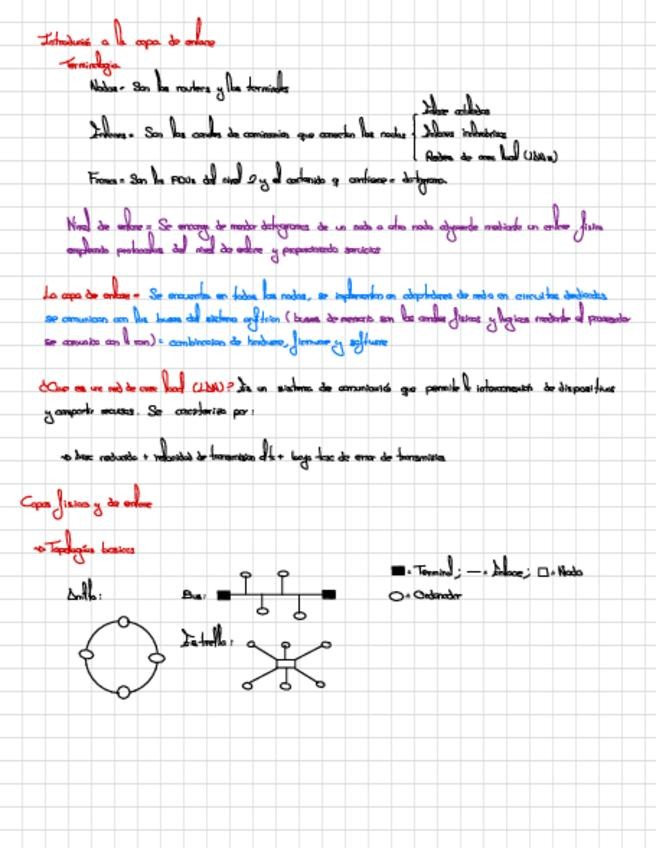 Introducció a la capa de enlace
Terminologia
Nodos = Son los routers y los terminales
Enlaces = Son los canales de comunicacion que conectan los nodos
Enlaces cableados
Enlaces inalambricos
Redes de area local (LANs)
Frames = Son las PDUs del nivel 2 y el contenido q contiene = datagrama
Nivel de enlace = Se encarga de mandar datagramas de un nodo a otro nodo adyacente mediante un enlace fisico
empleando protocolos del nivel de enlace y proporcionando servicios
La capa de enlace = Se encuentra en todos los nodos, se implementan en adaptadores de red o en circuitos dedicados
se comunican con los buses del sistema anfitrion (buses de memoria son los canales fisicos y logicos mediante el procesador
se comunica con l ram) = combinacion de hardware, firmware y software
¿Que es una red de area local (LAN)? Es un sistema de comunicació que permite la interconexión de dispositivos
y compartir recursos. Se caracteriza por:
→ área reducida + velocidad de transmision alta + baja tasa de error de transmisión
Capas fisica y de enlace
→ Topologias basicas
■ = Terminal; — = Enlace; □ = Nodo
○ = Ordenador
Anillo:
Bus:
Estrella: